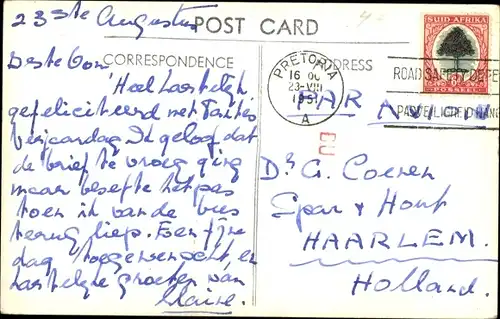 23ste Augustus
POST CARD
CORRESPONDENCE
Beste Oom
Heel hartelijk
gefeliciteerd met Tantes
verjaardag. Ik geloof dat
de brief te vroeg ging
maar besefte het pas
toen ik van de bus
terug liep. Een fijne
dag toegewenscht en
hartelijke groeten van
Claire.
ADDRESS
PRETORIA
16 00
23-VIII
1951
A
SUID-AFRIKA
POSSEEL
ROAD SAFETY DEPE
PADVEILIGHEID HANG
PAR AVION
Dr G. Coenen
Spar & Hout
HAARLEM.
Holland.